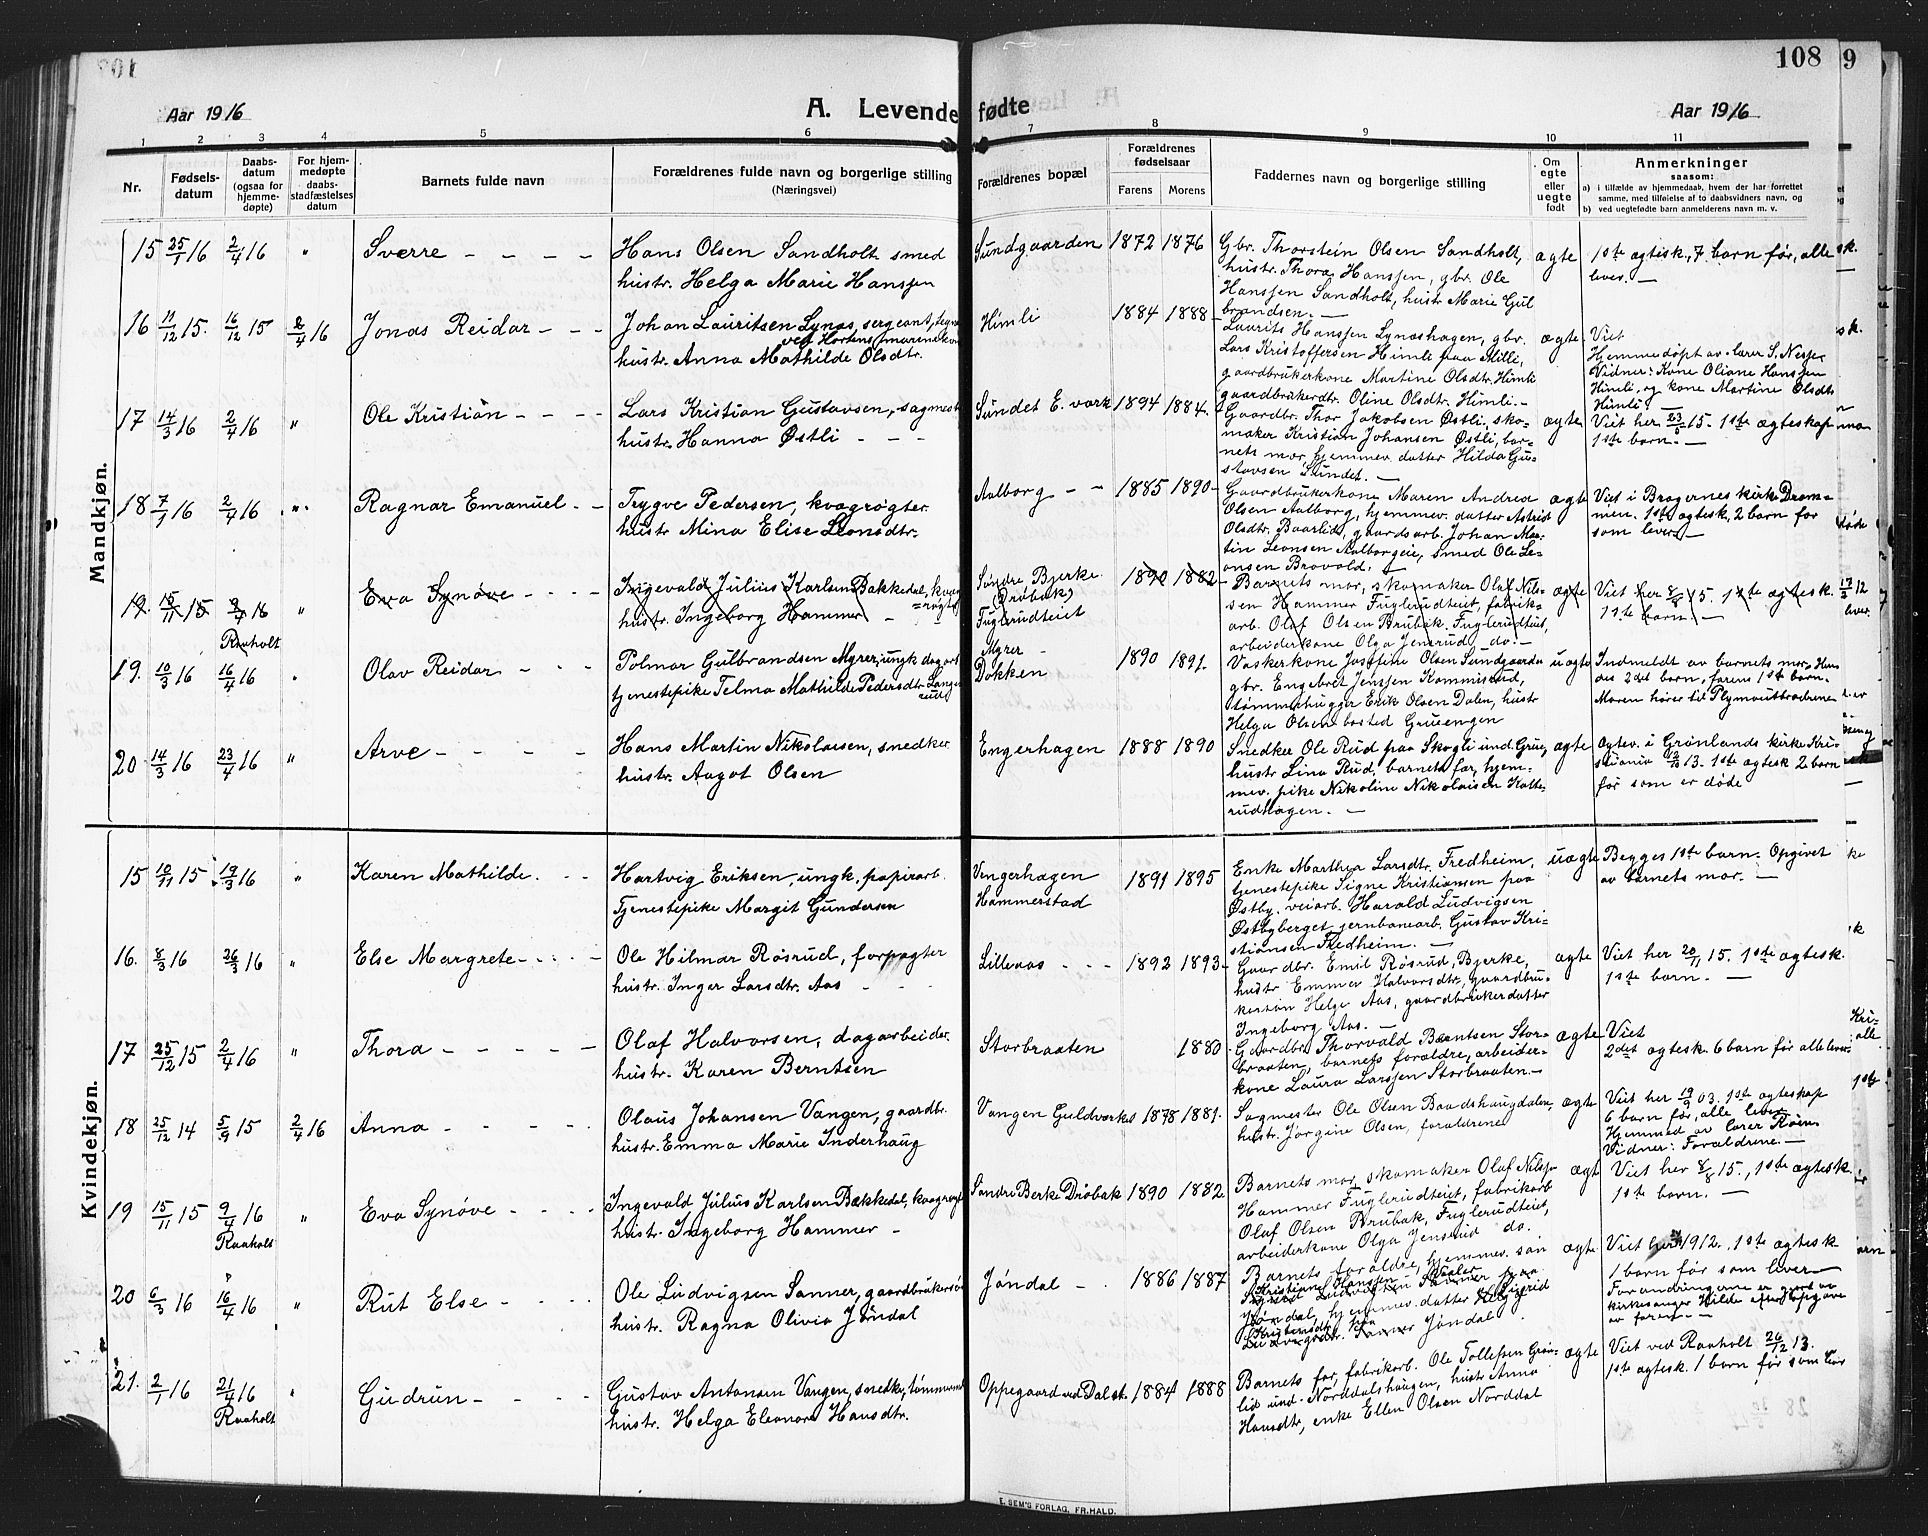 108
9
Aar 1916
A. Levende fødte
Aar 1916
1 2 3 4 5 6 7 8 9 10 11
Nr.
Fødselsdatum
Daabsdatum (ogsaa for hjemmedøpte)
For hjemmedøpte daabsstadfæstelses datum
Barnets fulde navn
Forældrenes fulde navn og borgerlige stilling
(Næringsvei)
Forældrenes bopæl
Forældrenes fødselsaar
Farens Morens
Faddernes navn og borgerlige stilling
Om egte eller uegte født
Anmerkninger
saasom:
a) i tilfælde av hjemmedaab, hvem der har forrettet
samme, med tilføielse af to daabsvidners navn, og
b) ved uegtefødte barn anmelderens navn m. v.
Mandkjøn.
15 25/1 16 2/4 16 " Sverre
Hans Olsen Sandholt smed
hustr. Helga Marie Hanssen
Sundgaarden 1872 1876
Gbr. Thorstein Olsen Sandholt,
hustr. Thora Hanssen, gbr. Ole
Hanssen Sandholt, hustr Marie Gul
brandsen.
ægte
1ste ægtesk, 7 barn før, alle
lever.
16 11/12 15. 16/12 15 2/4 16 Jonas Reidar
Johan Lauritsen Lynæs, sergeant,
hustr. Anna Mathilde Olsdtr.
Himli 1884 1888
Laurits Hanssen Lynæshagen, gbr.
Lars Kristoffersen Himli paa Milli,
gaardbrukerkone Martine Olsdtr. Himli
gaardbrukerdtr. Oline Olsdtr. Himli.
ægte
Viet
Hjemmedøpt av lærer S. Nesje
Vidner: Kone Oliane Hanssen
Himli, og kone Martine Olsdtr
Himli
17 14/3 16 2/4 16 " Ole Kristian
Lars Kristian Gustavsen, sagmest
hustr. Hanna Østli
Sundet E. værk 1894 1884.
Gaardbr. Thor Jakobsen Østli, sko-
maker Kristian Johansen Østli, bar-
nets mor, hjemmev. datter Hilda Gu-
stavsen Sundet.
ægte
Viet her 15. 1ste ægteskap
1ste barn.
18 7/1 16 2/4 16 " Ragnar Emanuel
Trygve Pedersen, kvægrøgter
hustr Mina Elise Leonsdtr.
Aalborg 1885 1890
Gaardbrukerkone Maren Andrea
Olsen Aalborg, hjemmev. datter Astrid
Olsdtr. Baarlid, gaardsarb. Johan Mar-
tin Leonsen Aalborgeie, smed Ole Le-
onsen Brovold.
ægte
Viet i Bragernes kirke Dram-
men. 1ste ægtesk, 2 barn før
som lever.
19. 15/11 15 9/4 16 " Eva Synøve
Raaholt
Ingevald Julius Karlsen Bækkedal, kvæg-
røgter
hustr. Ingeborg Hammer
Søndre Bjerke
(Drøbak)
Fuglerudteiet
1890 1882
Barnets mor, skomaker Olaf Nils-
sen Hammer Fuglerudteiet, fabrik-
arb. Olaf Olsen Brubak, Fuglerudteiet,
arbeiderkone Olga Jensrud do.
ægte
Viet her 8/8 15. 1ste ægtesk.
1ste barn
19. 10/3 16 16/4 16 " Olav Reidar
Polmar Gulbrandsen Myrer, ungk dagarb
tjenestepike Telma Mathilde Pedersdtr Langerud
Myrer
Dokken
1890 1891.
Vaskerkone Josefine Olsen Sundgaarden
gbr. Engebret Jenssen Kommisrud,
tømmerhugger Erik Olsen Dalen, hustr
Helga Olsen bosted Gruengen
uægte
Indmeldt av barnets mor. Hen
des 2det barn, farens 1ste barn.
Moren hører til Plymouttbrødrene
20. 14/3 16 23/4 16 " Arve
Hans Martin Nikolaisen, snedker
hustr. Aagot Olsen
Engerhagen 1888 1890
Snedker Ole Rud paa Skogli und. Grue,
hustr Lina Rud, barnets far, hjem-
mev. pike Nikoline Nikolaisen Halte-
rudhagen.
ægte
Ægtev. i Grønlands kirke Kri-
stiania 13. 1ste ægtesk 2 barn
før som er døde
Kvindekjøn.
15 10/11 15 19/3 16 " Karen Mathilde.
Hartvig Eriksen, ungk. papirarb.
Tjenestepike Margit Gundersen
Vengerhagen
Hammerstad
1891 1895
Enke Marthea Larsdtr. Fredheim,
tjenestepike Signe Kristiansen paa
Østby, veiarb. Harald Ludvigsen
Østbyberget jernbanearb. Gustav Kri-
stiansen Fredheim.
uægte
Begges 1ste barn. Opgivet
av barnets mor.
16. 8/3 16 26/3 16 " Else Margrete
Ole Hilmar Røsrud, forpagter
hustr. Inger Larsdtr. Aas
Lilleaas 1892 1893
Gaardbr. Emil Røsrud, Bjerke,
hustr Emma Halvorsdtr, gaardbru-
kersøn Helge Aas, gaardbrukerdatter
Ingeborg Aas.
ægte
Viet her 20/11 15. 1ste ægtesk.
1ste barn.
17 25/12 15 2/4 16 " Thora
Olaf Halvorsen, dagarbeider
hustr. Karen Berntsen
Storbraaten 1880
Gaardbr. Thorvald Bærntsen Stor-
braaten, barnets forældre, arbeider-
kone Laura Larssen Storbraaten.
ægte
Viet
2det ægtesk. 6 barn før alle lever
18 25/12 14 5/9 15 2/4 16 Anna
Olaus Johansen Vangen, gaardbr.
hustr. Emma Marie Inderhaug
Vangen Guldverket 1878 1881.
Sagmester Ole Olsen Baadshaugdalen,
hustr. Jørgine Olsen, forældrene
ægte
Viet her 03. 1ste ægteskap
6 barn før, alle lever
Hjemmed av lærer
Vidner: Forældrene.
19 15/11 15 9/4 16 " Eva Synøve
Raaholt
Ingevald Julius Karlsen Bækkedal, kvægrøgter
hustr. Ingeborg Hammer
Søndre Berke Drøbak 1890 1882
Barnets mor skomaker Olaf Nilsse
Hammer Fuglerudteiet, fabrikarb
Olaf Olsen Brubak, Fuglerudteiet,
arbeiderkone Olga Jensrud do.
ægt
Viet her 8/8 15., 1ste ægtesk
1ste barn.
20 6/3 16 16/4 16 " Rut Else
Ole Ludvigsen Sanner, gaardbrukersøn
hustr. Ragna Olivia Jøndal
Jøndal 1886 1887
Barnets forældre, hjemmev. søn
Kristian Hanssen
Jøndal, hjemmev. datter
Jøndal
ægte
Viet her 1912. 1ste ægtesk
1 barn før som lever
Forandringerne er gjort av
kirkesanger Hilde efter opgave
av faren
21. 2/1 16 21/4 16 " Gudrun
Raaholt
Gustav Antonsen Vangen, snedk,
hustr. Helga Eleonora Hansdtr.
Oppegaard ved Dal st. 1884 1888
Barnets far, fabrikarb. Ole Tollefsen Grøn-
lid und. Norddalshaugen, hustr Anna
Hansdtr, enke Ellen Olsen Norddal
ægte
Viet ved Raaholt 26/12 13.
1ste ægtesk. 1 barn før som lever
E. SEM'S FORLAG, FR.HALD.